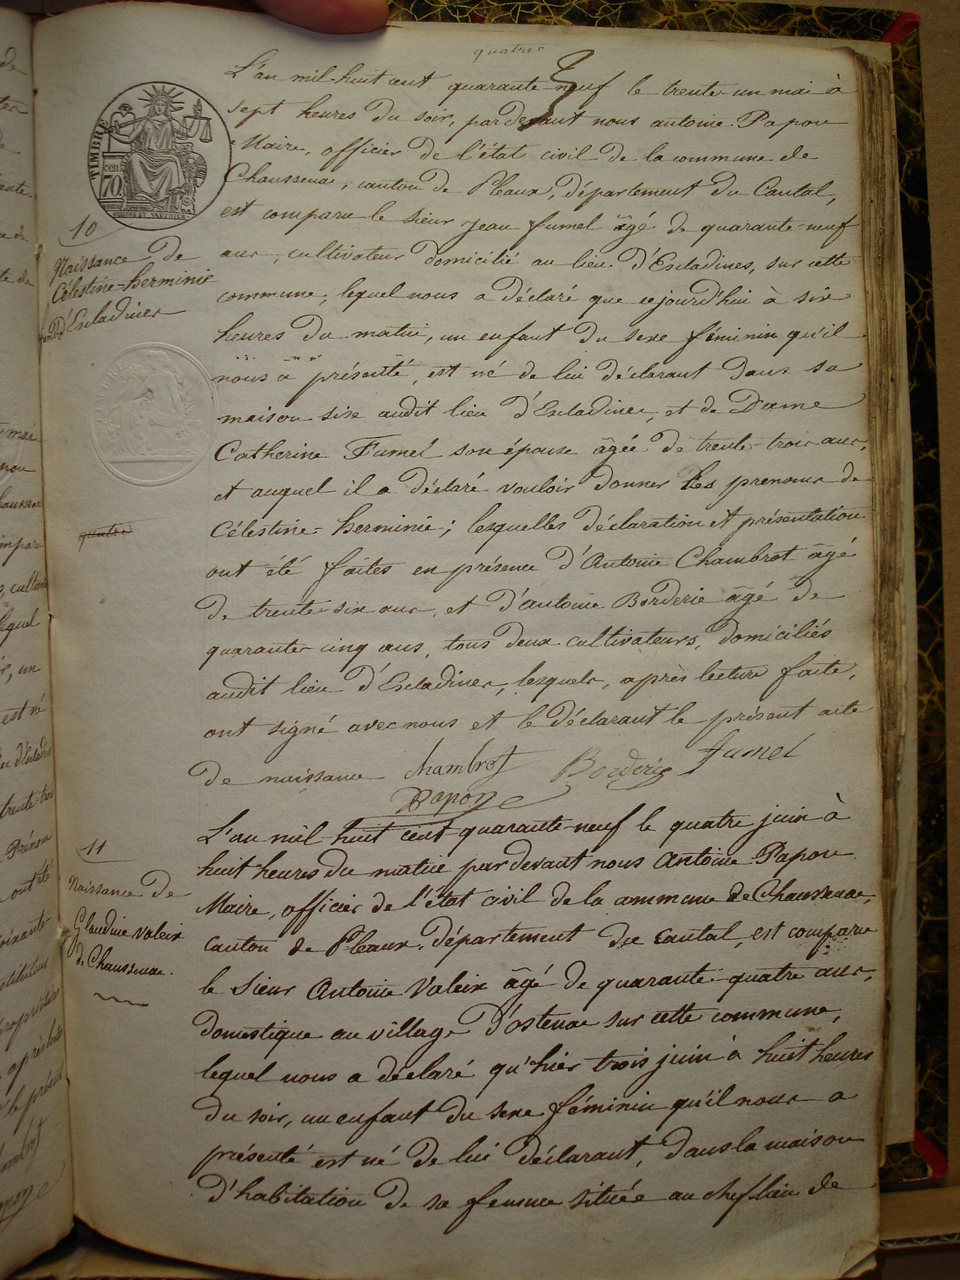 quatre
L'an mil-huit cent quarante-neuf le trente-un mai à
sept heures du soir, pardevant nous antoine Papon
Maire, officier de l'état civil de la commune de
Chaussenac, canton de Pleaux, département du Cantal,
est comparu le sieur jean fumel âgé de quarante-neuf
ans, cultivateur domicilié au lieu d'Escladines, sur cette
commune, lequel nous a déclaré que cejourd'hui à six
heures du matin, un enfant du sexe féminin qu'il
nous a présenté, est né de lui déclarant dans sa
maison sise audit lieu d'Escladines, et de Dame
Catherine Fumel son épouse âgée de trente-trois ans,
et auquel il a déclaré vouloir donner les prenoms de
Célestine-herminie; lesquelles déclaration et présentation
ont été faites en présence d'Antoine Chambrot âgé
de trente six ans, et d'antoine Borderie âgé de
quarante-cinq ans, tous deux cultivateurs, domiciliés
audit lieu d'Escladines, lesquels, après lecture faite,
ont signé avec nous et le déclarant le présent acte
de naissance chambrot Borderie fumel
Papon
TIMBRE
70
10
Naissance de
Célestine-herminie
fumel d'Escladines
quatre
L'an mil huit cent quarante-neuf le quatre juin à
huit heures du matin pardevant nous Antoine Papon
Maire, officier de l'état civil de la commune de Chaussenac,
canton de Pleaux, département du Cantal, est comparu
le sieur Antoine Valeix âgé de quarante-quatre ans,
domestique au village d'ostenac sur cette commune,
lequel nous a déclaré qu'hier trois juin à huit heures
du soir, un enfant du sexe féminin qu'il nous a
présenté est né de lui déclarant, dans la maison
d'habitation de sa femme située au chef-lieu de
11
Naissance de
Claudine Valeix
de Chaussenac.